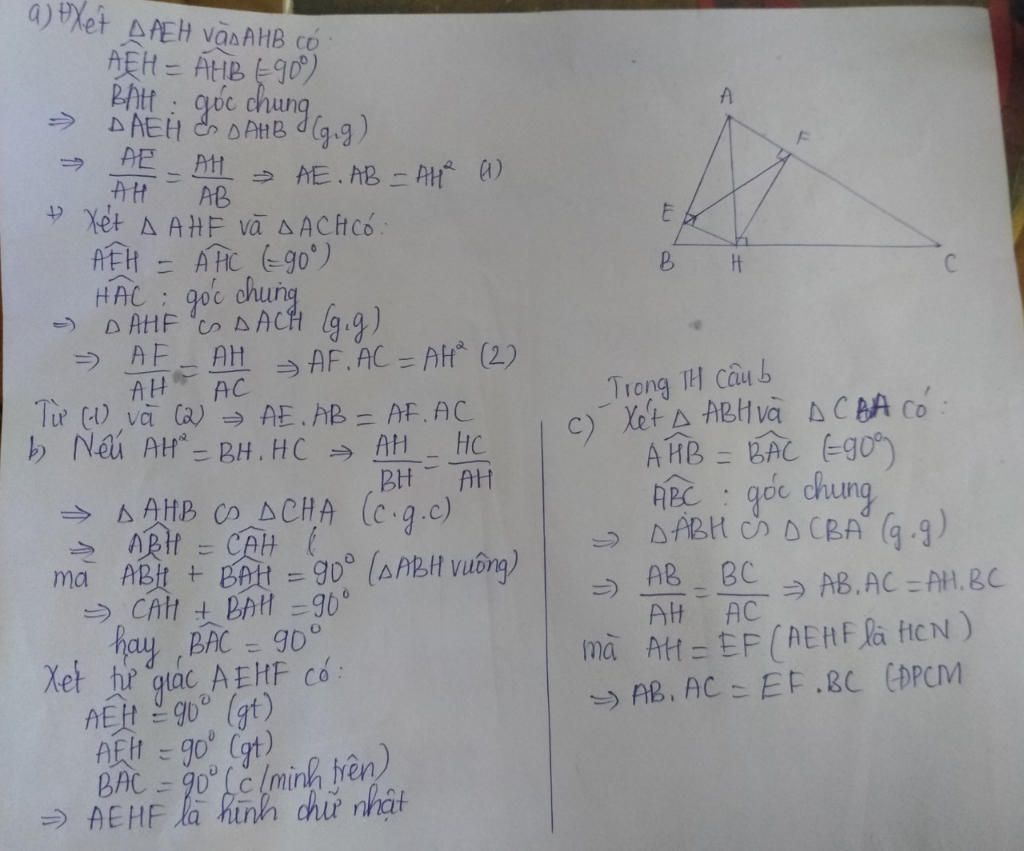 a) +) Xét △AEH và △AHB có:
AÊH = AĤB (=90°)
BÂH : góc chung
⇒ △AEH ∽ △AHB (g.g)
⇒ AE/AH = AH/AB ⇒ AE.AB = AH² (1)
+) Xét △AHF và △ACH có:
AF̂H = AĤC (=90°)
HÂC : góc chung
⇒ △AHF ∽ △ACH (g.g)
⇒ AF/AH = AH/AC ⇒ AF.AC = AH² (2)
Từ (1) và (2) ⇒ AE.AB = AF.AC
b) Nếu AH² = BH.HC ⇒ AH/BH = HC/AH
⇒ △AHB ∽ △CHA (c.g.c)
⇒ AB̂H = CÂH (
mà AB̂H + BÂH = 90° (△ABH vuông)
⇒ CÂH + BÂH = 90°
hay BÂC = 90°
Xét tứ giác AEHF có:
AÊH = 90° (gt)
AF̂H = 90° (gt)
BÂC = 90° (c/minh trên)
⇒ AEHF là hình chữ nhật
A
F
E
B
H
C
Trong TH câu b
c) Xét △ABH và △CBA có:
AĤB = BÂC (=90°)
AB̂C : góc chung
⇒ △ABH ∽ △CBA (g.g)
⇒ AB/AH = BC/AC ⇒ AB.AC = AH.BC
mà AH = EF (AEHF là HCN)
⇒ AB.AC = EF.BC (ĐPCM